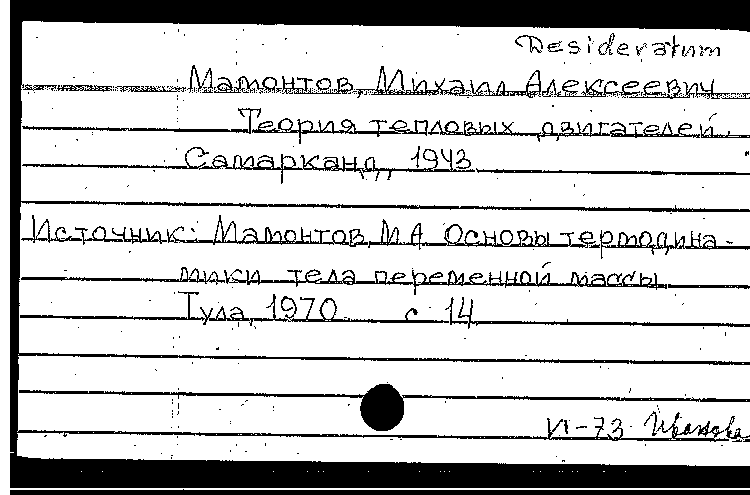 Desideratum
Мамонтов, Михаил Алексеевич
Теория тепловых двигателей.
Самарканд, 1943
Источник: Мамонтов, М А Основы термодина-
мики тела переменной массы
Тула, 1970 с 14
VI-73 Иванова